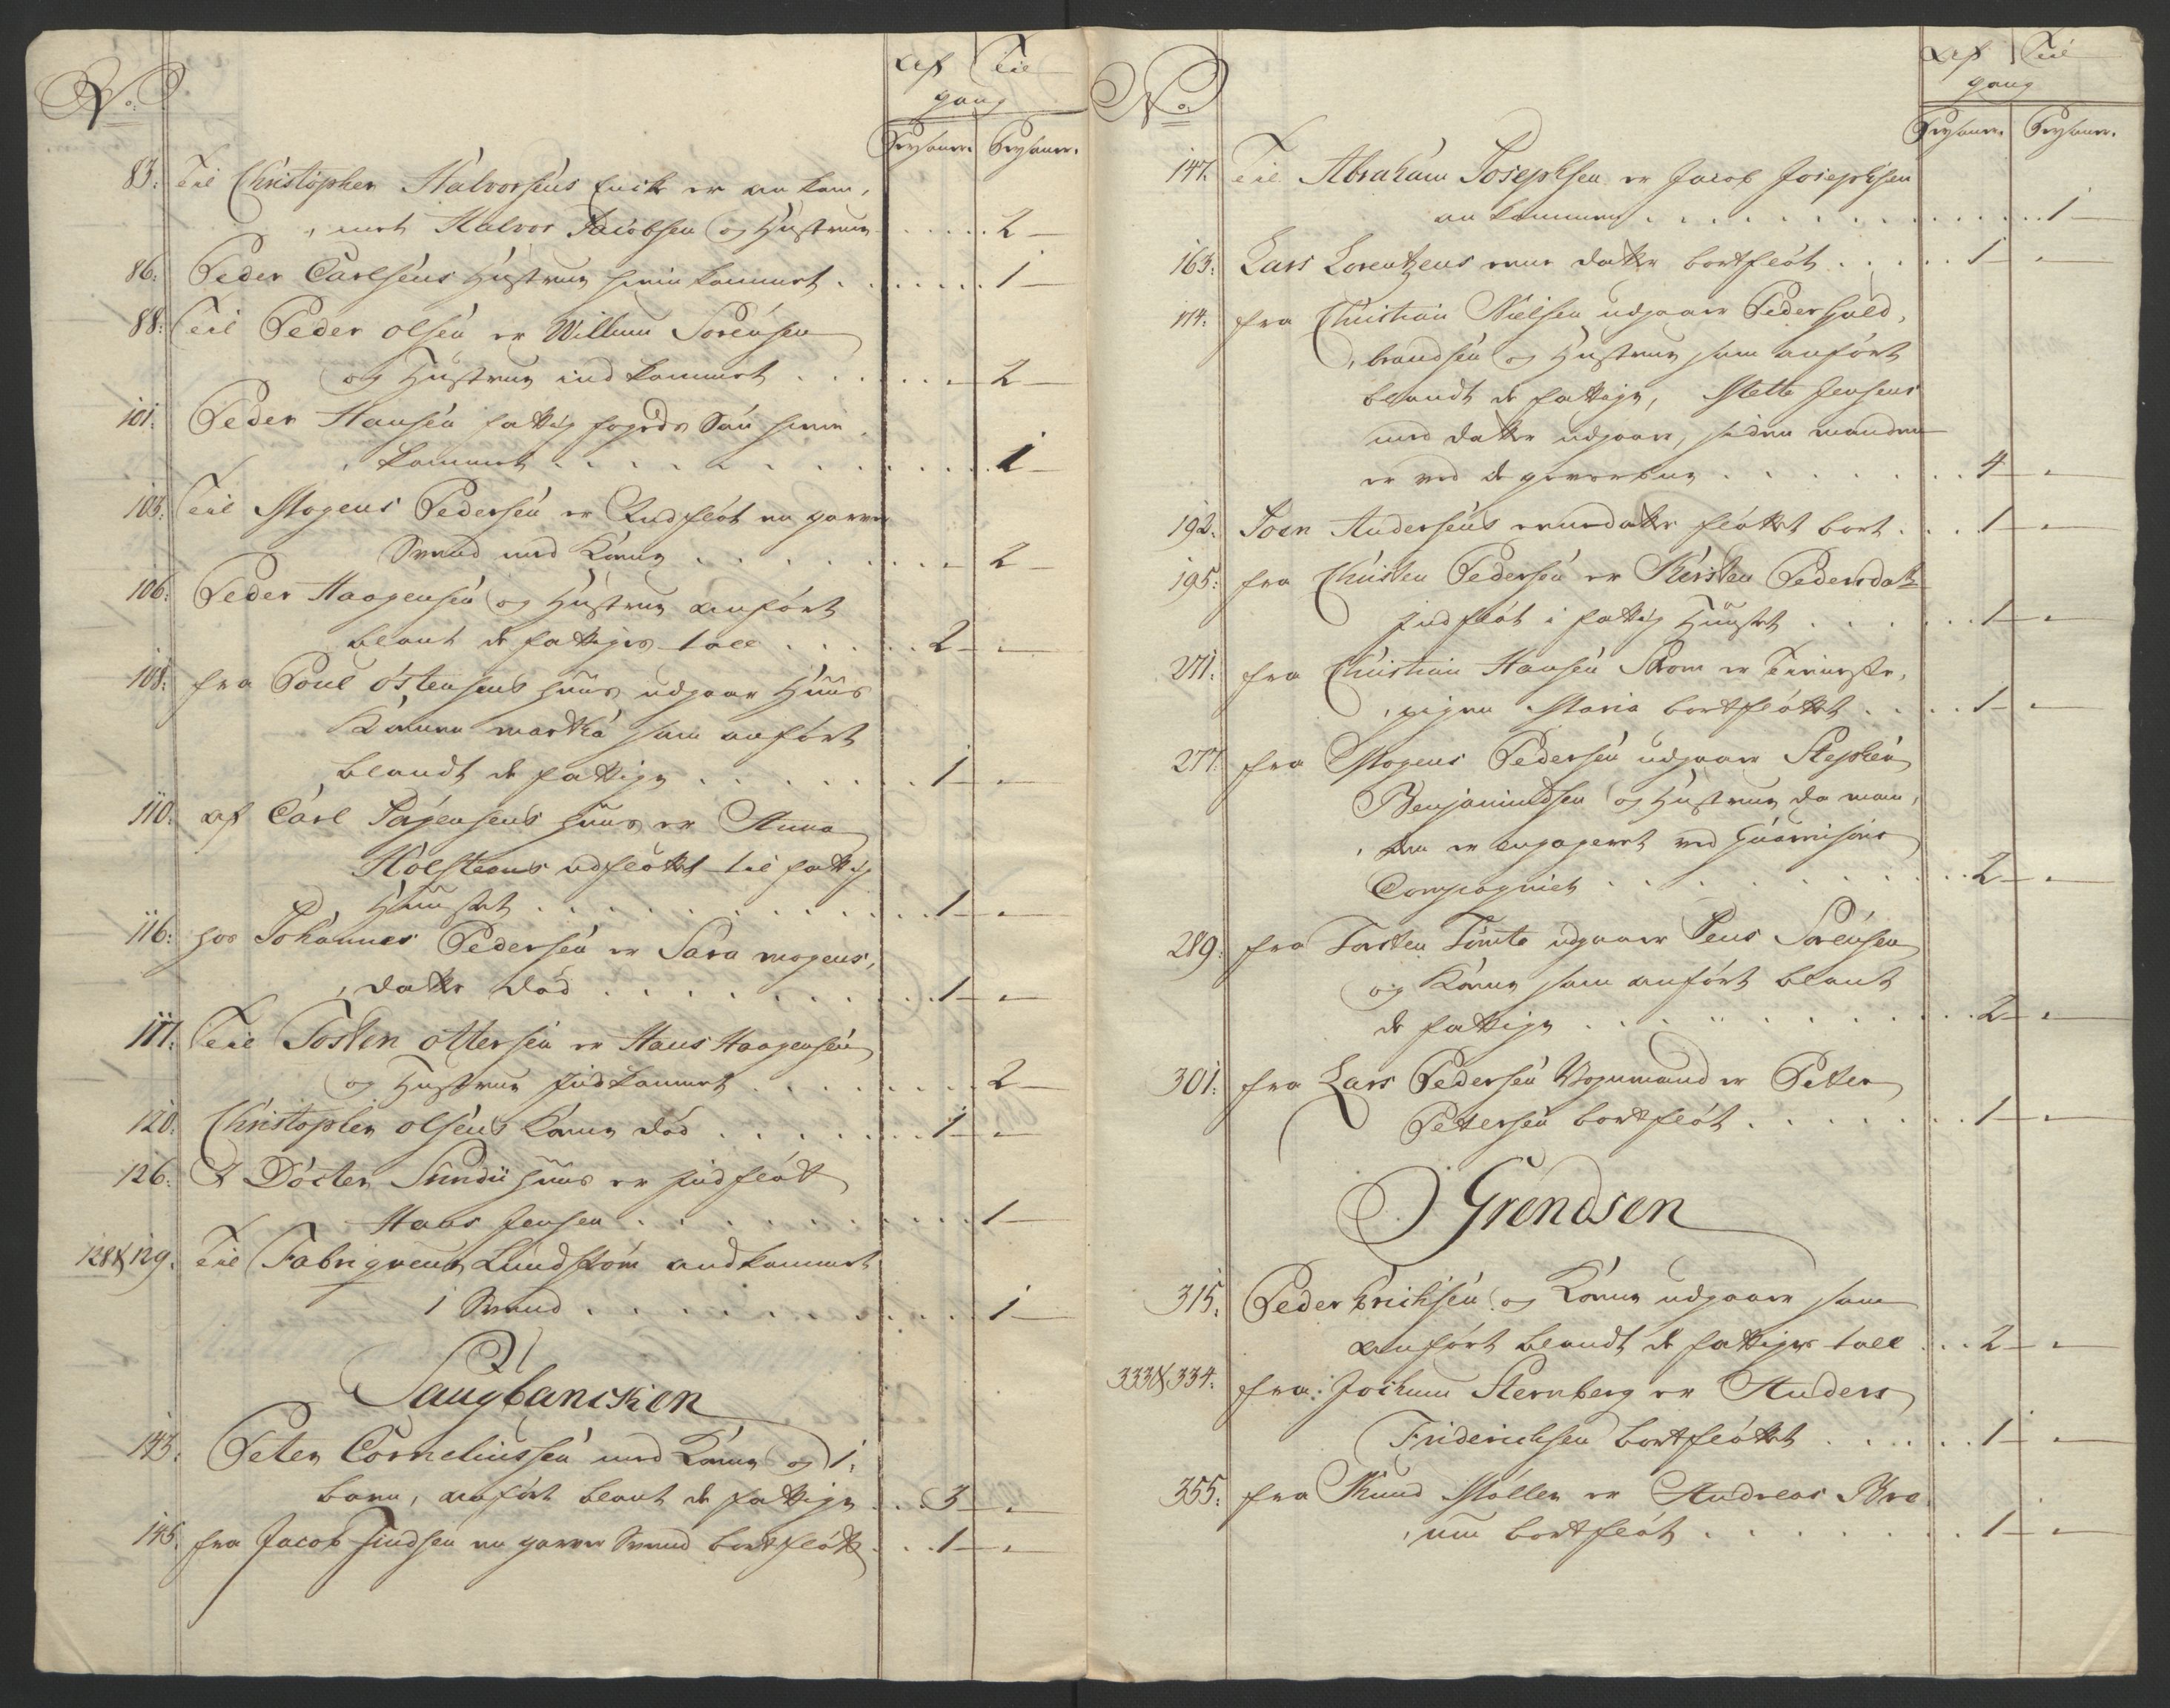 No.
Af Til
gang
Persohner. Persohner.
83. Til Christopher Halvorsens Encke er an kom,
met Halvor Jacobsen og Hustrue . . . . 2 —
86. Peder Carlsens Hustrue herin kommet . . . . 1 —
88. Til Peder Olsen er Willum Sörensen
og Hustrue ind kommet . . . . 2 —
101. Peder Hansen fattig fogeds Sön herin
kommet . . . . 1 —
103. Til Mogens Pedersen er Indflöt en garver
Svend med Kone . . . . 2 —
106. Peder Haagensen og Hustrue anfört
blant de fattiges tall . . . . 2 —
108. fra Poul Östensens huus udgaar Huus
Konene martha som anfört
blandt de fattige . . . . 1 —
110. af Carl Jörgensens huus er Anna
Holsteens udflöttet til fattig
Huuset . . . . 1 —
116. hos Johannes Pedersen er Sara mogens,
datter död . . . . 1 —
117. Til Tosten Ottersen er Hans Haagensen
og Hustrue Indkommet . . . . 2 —
120. Christopher Olsens Kone död . . . . 1 —
126. I Döcter huus er indflöt
Hans Jensen . . . . 1 —
128 & 129. Til Fabriqveur Lundström andkommet
1 Svend . . . . 1 —
Saugbancken
143. Peter Corneliussen med Kone og 1,
barn, anfört blant de fattige . . . 3 —
145. fra Jacob Findsen en garver Svend bortflött . . . 1 —
No.
Af Til
gang
Persohner. Persohner.
147. Til Abraham Josephsen er Jacob Josephsen
an kommen . . . . 1 —
163. Lars Lorentzens eene datter bortflöt . . . . 1 —
174. fra Christian Nielsen udgaar Peder Hild,
brandsen og Hustrue som anfört
blandt de fattige, Mette Jensens
med datter udgaar, siden manden
er ved de gevorbne . . . . 4 —
192. Joen Andersens eene datter flöttet bort . . . 1 —
195. fra Christen Pedersen er Kirsten Pedersdatt
Indflöt i fattig Huuset . . . . 1 —
271. fra Christian Hansen Strom er Tieneste,
pigen Maria bortflöttet . . . . 1 —
277. fra Mogens Pedersen udgaar Stephen
Benjamindsen og Hustrue da man,
den er engageret ved Guarnisons
Compagniet . . . . 2 —
289. fra Torsten Tomte udgaar Jens Sörensen
og Kone som anfört blant
de fattige . . . . 2 —
301. fra Lars Pedersen Vognmand er Peter
Petersen bortflöt . . . . 1 —
Grendsen
315. Peder Erichsen og Kone udgaar som
anfört blandt de fattiges tall . . . 2 —
333 & 334. fra Jochum Sternberg er Anders
Friderichsen bortflöttet . . . . 1 —
355. fra Knud Möller er Andreas Bre
um bortflöt . . . . 1 —